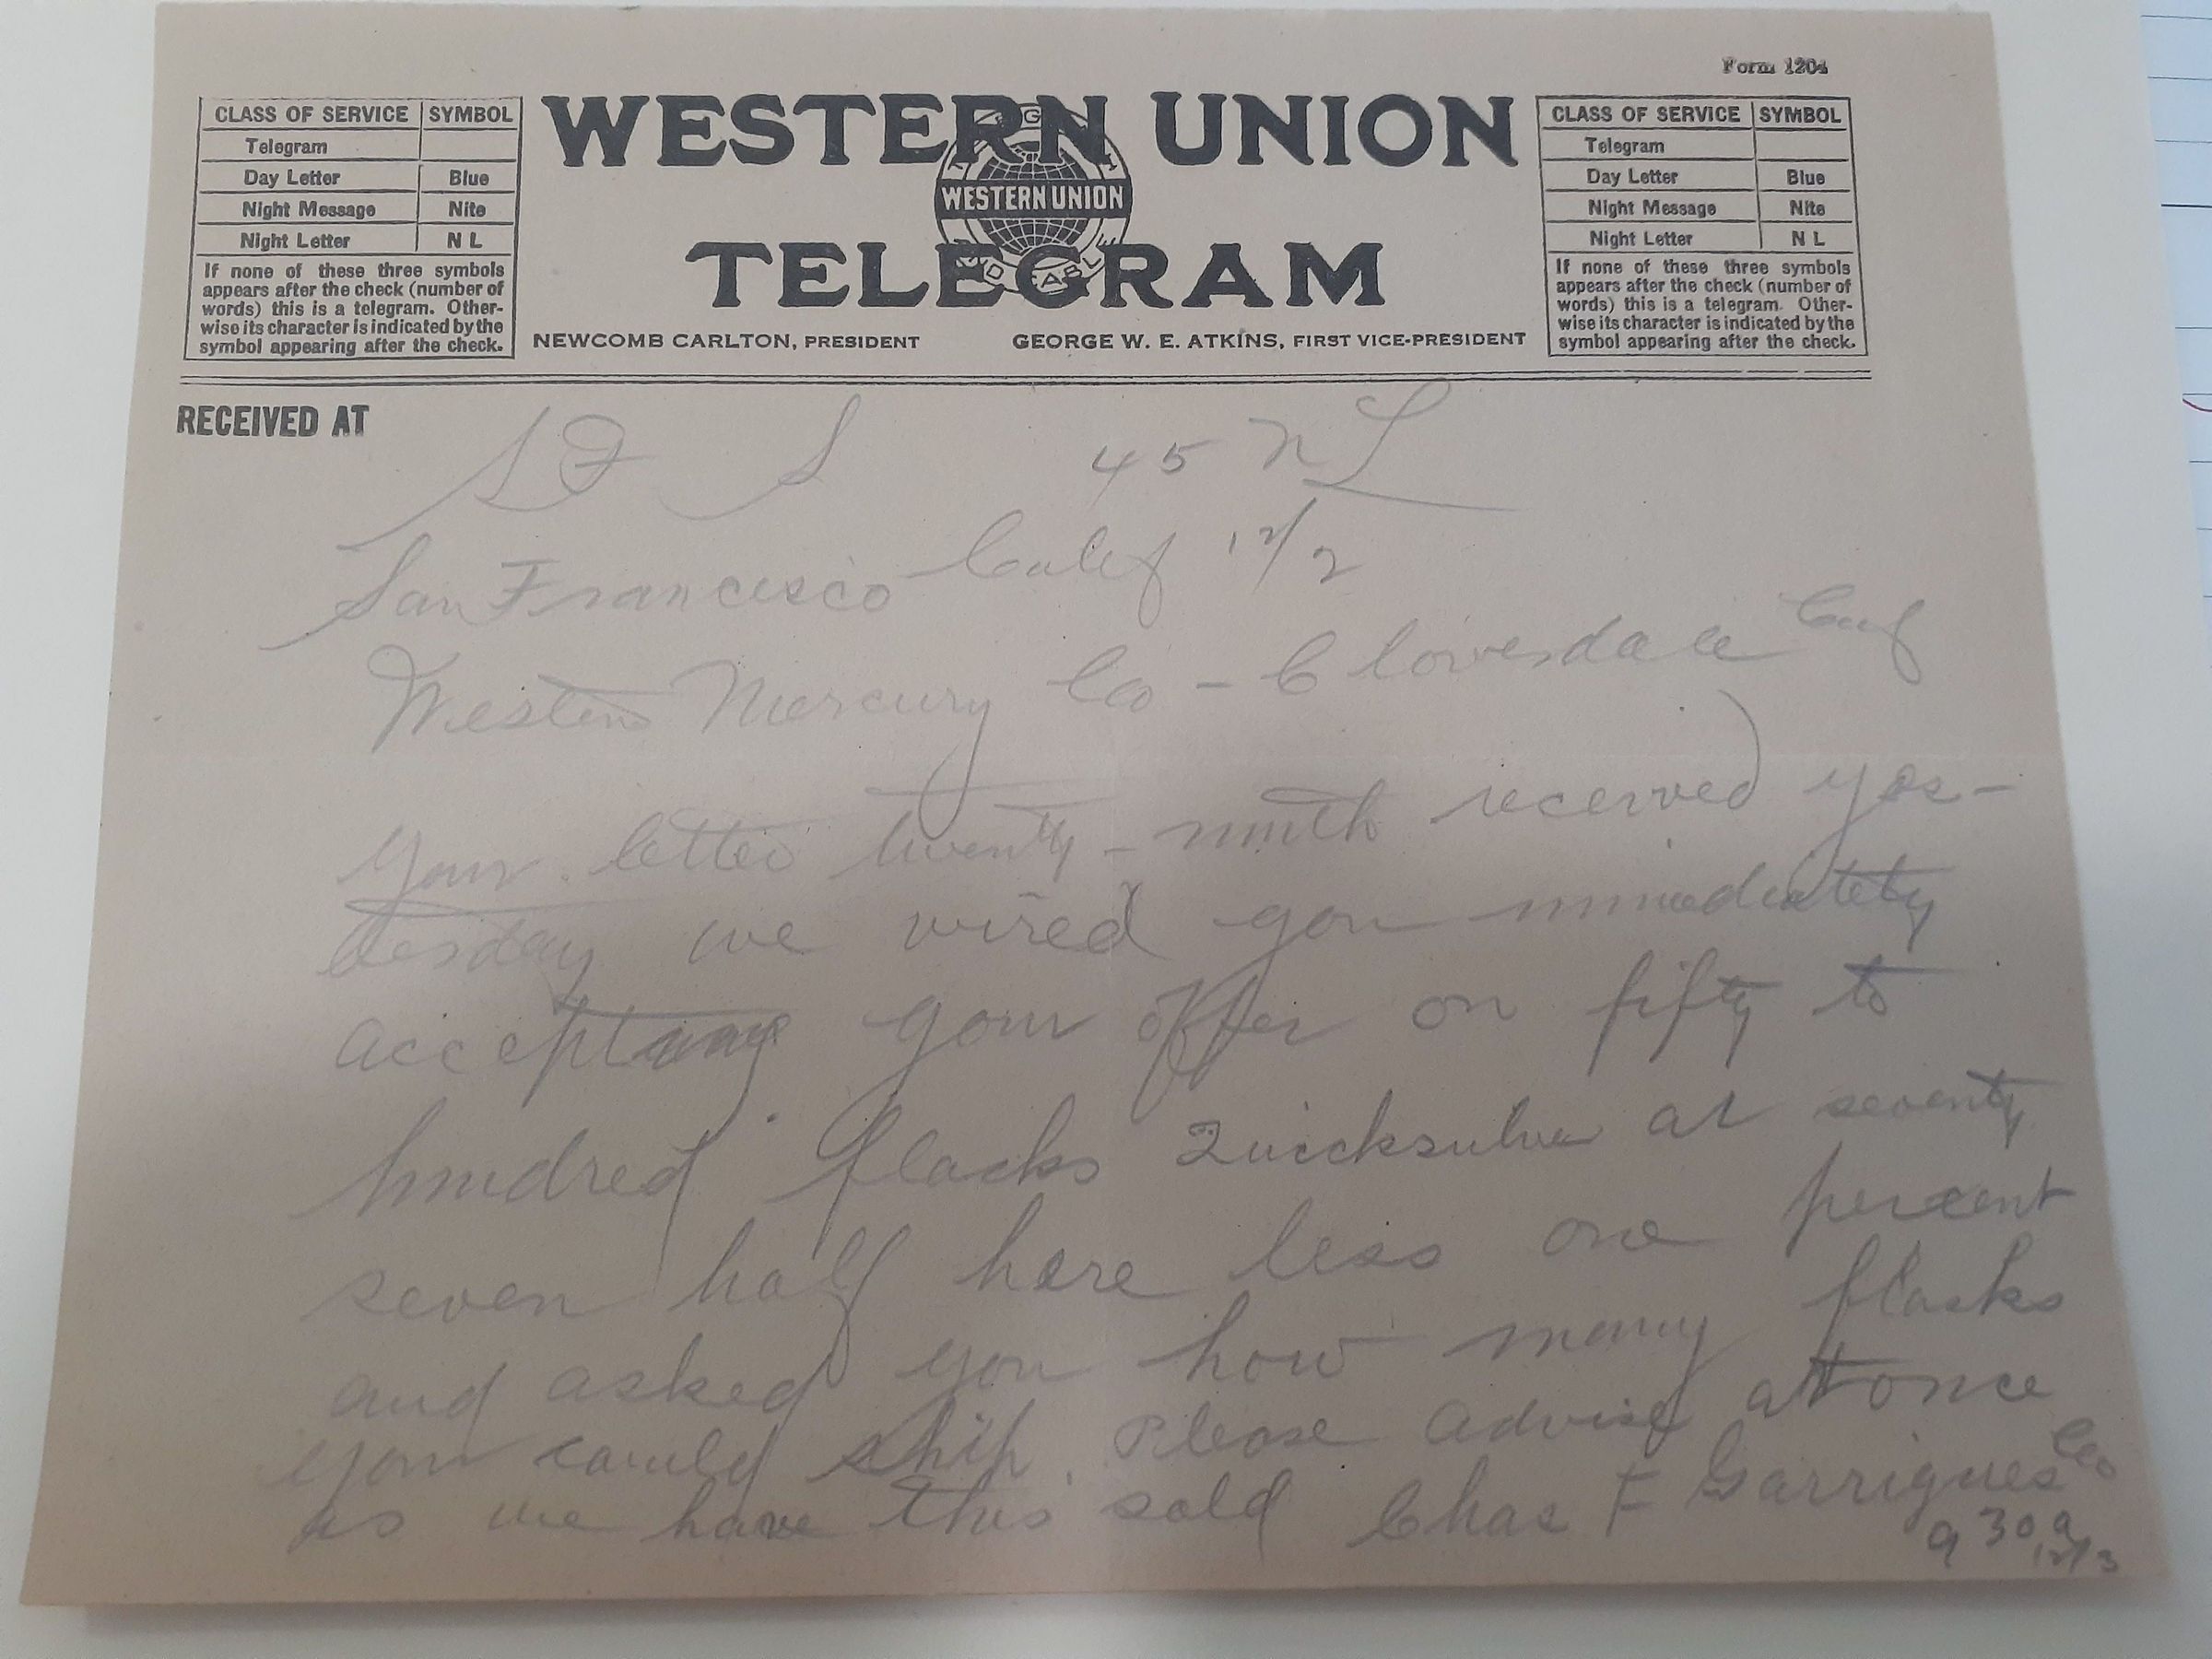 Form 1204
CLASS OF SERVICE SYMBOL
Telegram
Day Letter Blue
Night Message Nite
Night Letter N L
If none of these three symbols
appears after the check (number of
words) this is a telegram. Other-
wise its character is indicated by the
symbol appearing after the check.
WESTERN UNION
WESTERN UNION
TELEGRAM
NEWCOMB CARLTON, PRESIDENT GEORGE W. E. ATKINS, FIRST VICE-PRESIDENT
CLASS OF SERVICE SYMBOL
Telegram
Day Letter Blue
Night Message Nite
Night Letter N L
If none of these three symbols
appears after the check (number of
words) this is a telegram. Other-
wise its character is indicated by the
symbol appearing after the check.
RECEIVED AT
SF S 45 NL
San Francisco Calif 12/2
Western Mercury Co - Cloverdale Calif
Your letter twenty-ninth received yes-
terday we wired you immediately
accepting your offer on fifty to
hundred flasks Quicksilver at seventy
seven half here less one percent
and asked you how many flasks
you could ship. Please advise at once
as we have this sold Chas F Garrigues Co
930a
12/3